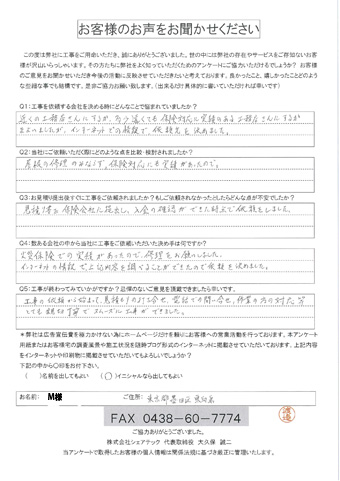 お客様のお声をお聞かせください
この度は弊社に工事をご用命いただき、誠にありがとうございました。世の中には弊社の存在やサービスをご存知ないお客
様が沢山いらっしゃいます。その方たちに弊社をよく知っていただくためのアンケートにご協力いただけるでしょうか？ お客
様のご意見をお聞かせいただき今後の活動に反映させていただきたいと考えております。良かったこと、嬉しかったことなどの
些細な事でも結構です。是非ご協力お願い致します。（出来るだけ具体的に書いていただければ幸いです）
Q1：工事を依頼する会社を決める時にどんなことで悩まれていましたか？
近くの工務店さんにするか、多少遠くても保険対応に実績のある工務店さんにするか
まよいましたが、インターネットでの検索で、依頼先を決めました。
Q2：当社にご依頼いただく際にどのような点を比較・検討されましたか？
屋根の修理のみならず、保険対応にも実績があったので。
Q3：お見積り提出後すぐに工事を依頼されましたか？もし依頼されなかったとしたらどんな点が不安でしたか？
見積り書を保険会社に提出し、入金の確認ができた時点で依頼をしました。
Q4：数ある会社の中から当社に工事をご依頼いただいた決め手は何ですか？
火災保険での実績があったので修理をお願いしました。
インターネットの検索で
Q5：工事が終わってみていかがでしたでしょうか？忌憚のないご意見を頂戴できましたら幸いです。
工事の依頼から始まって、見積もりの打ち合せ、電話での問い合せ、作業の方の対応
とても親切丁寧でスムーズに工事ができました。
＊弊社は広告宣伝費を極力かけない為にホームページだけを頼りにお客様への営業活動を行っております。本アンケート
用紙またはお客様宅の調査風景や施工状況を随時ブログ形式のインターネットに掲載させていただいております。上記内容
をインターネットや印刷物に掲載させていただいてもよろしいでしょうか？
下記の中から〇印をお付け下さい。
（ ）名前を出してもよい （〇）イニシャルなら出してもよい
お名前： M様 ご住所： 東京都
FAX 0438-60-7774
ご協力ありがとうございました。
株式会社シェアテック 代表取締役 大久保 誠二
当アンケートで取得したお客様の個人情報は関係法規に基づき厳正に管理いたします。